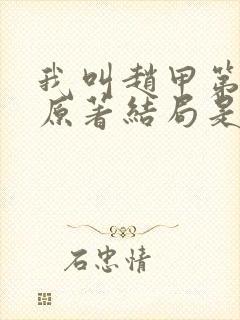 我叫趙甲第
原著結局是
石忠情